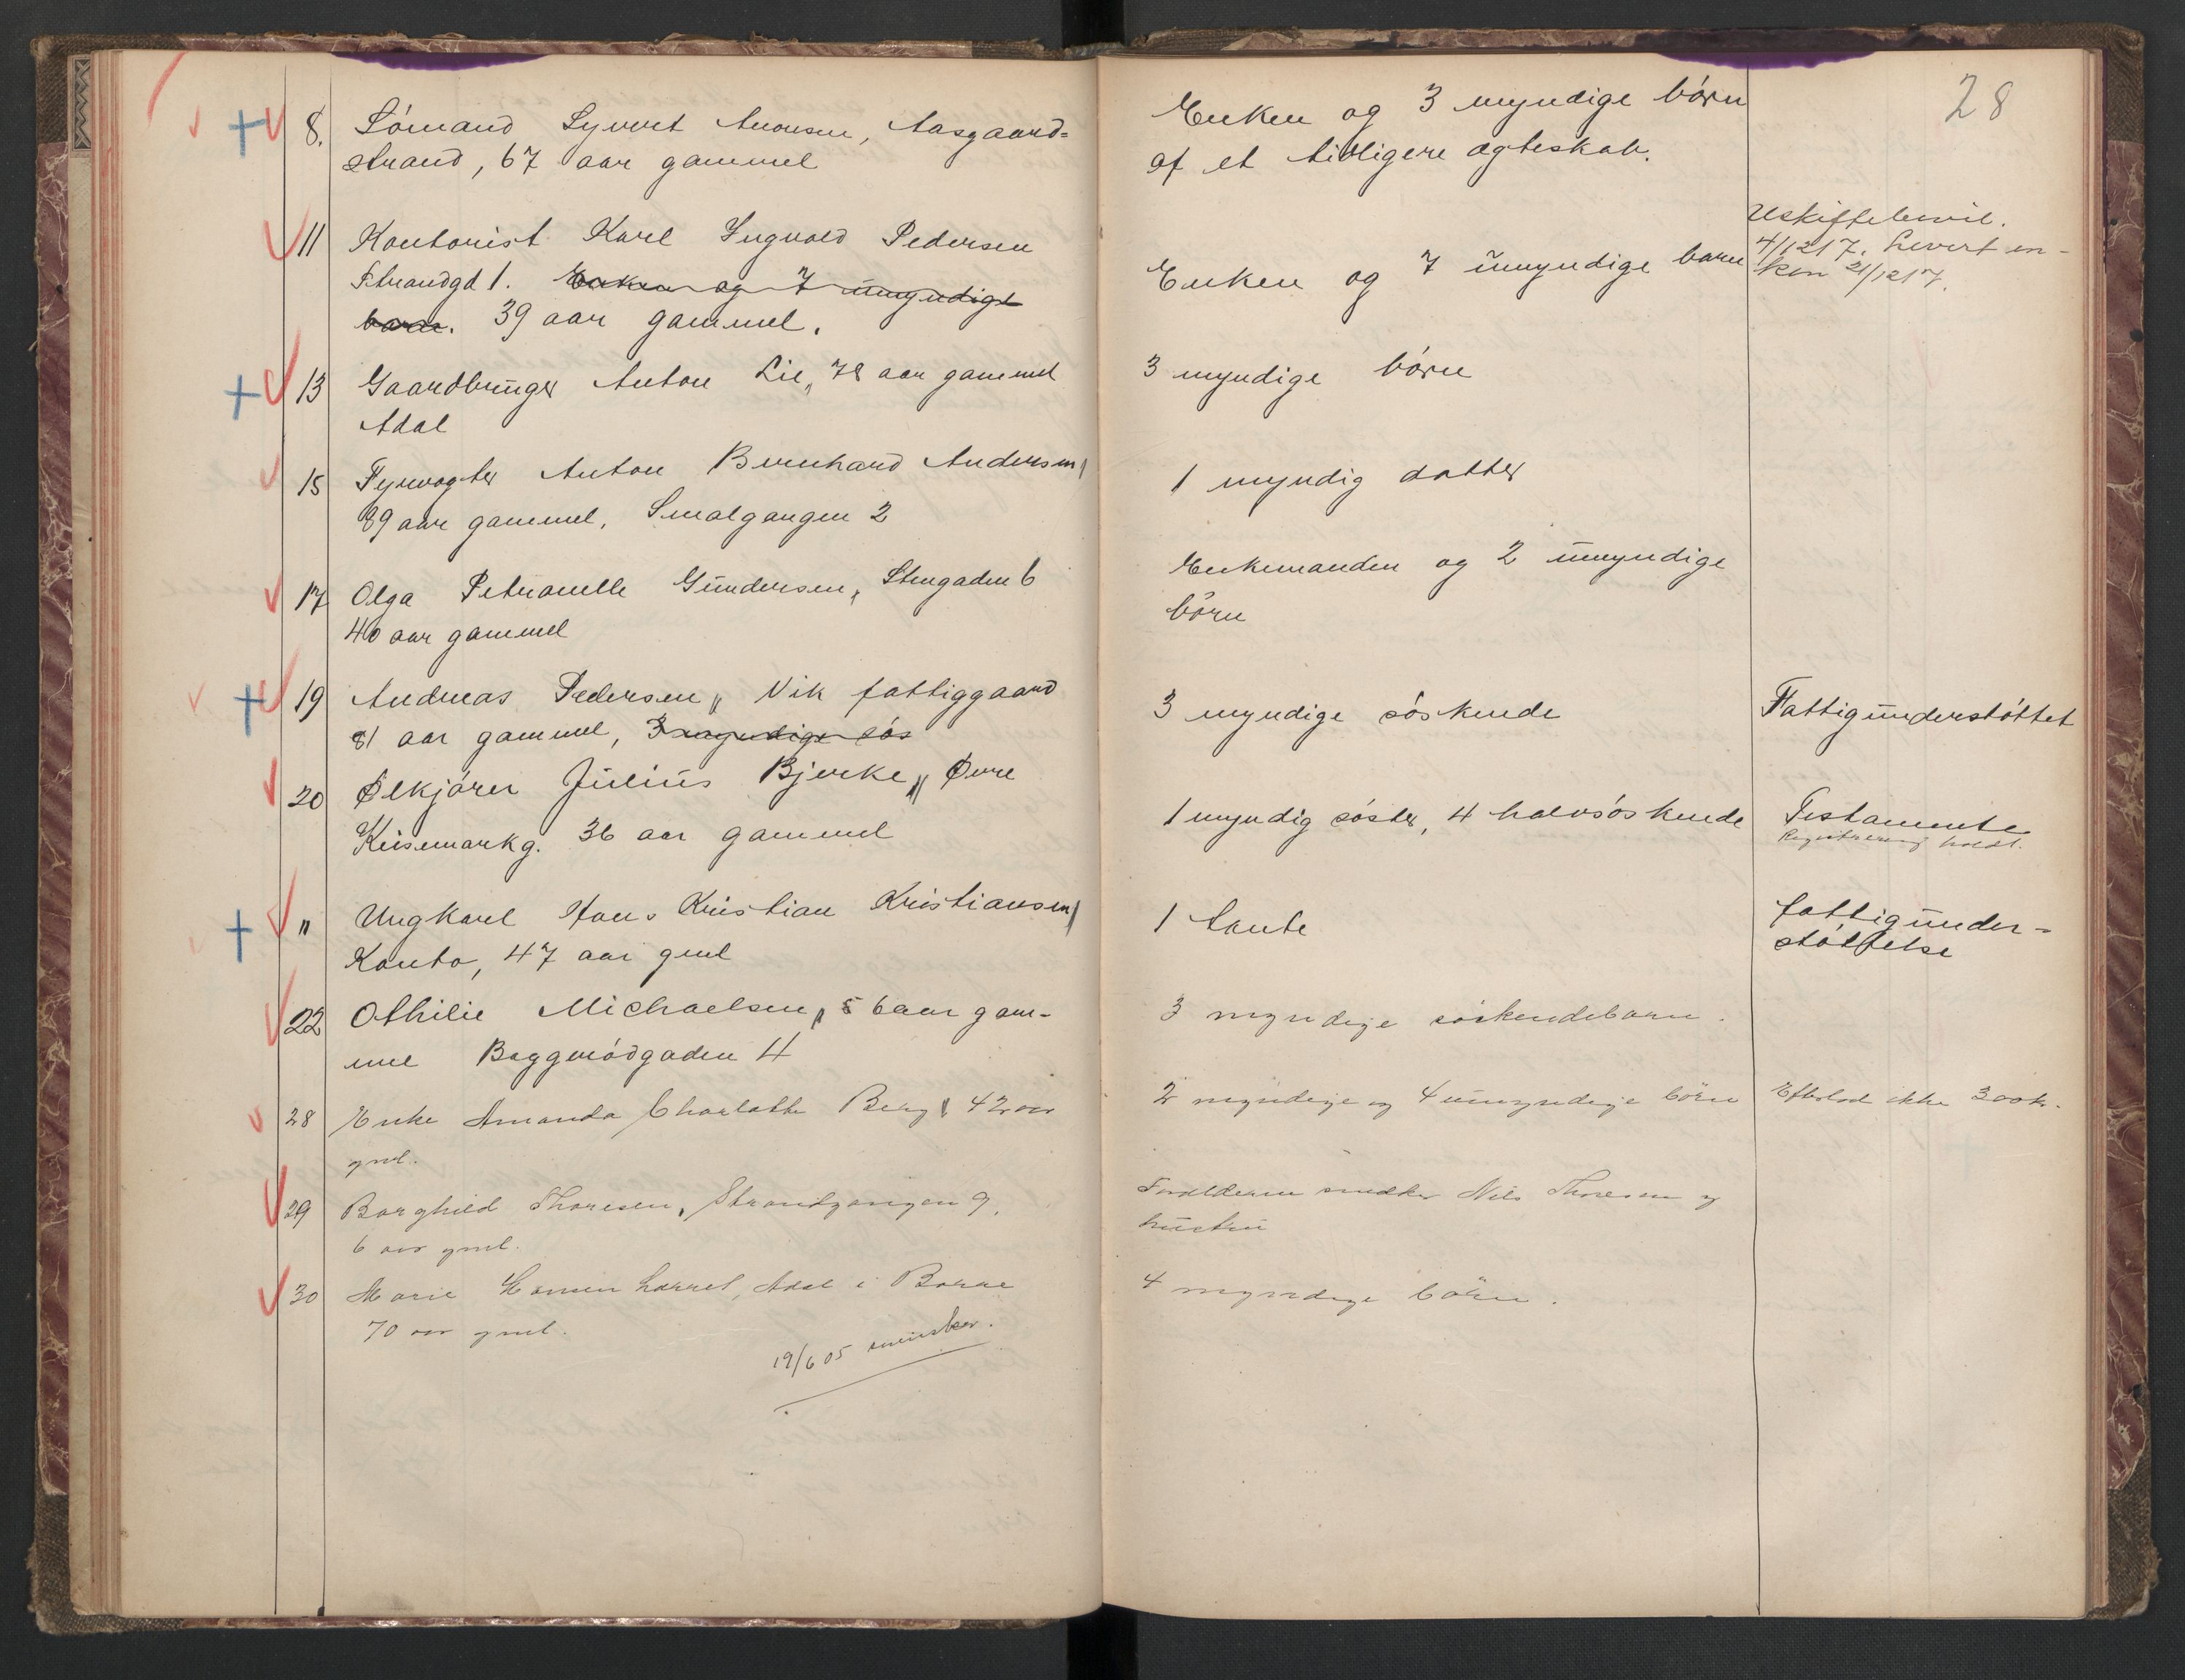 28
8. Sömand Syvert Aronsen, Aasgaard=
strand, 67 aar gammel
Enken og 3 myndige börn
af et tidligere ægteskab.
11 Kontorist Karl Ingvald Pedersen
Strandgd 1. Enken og 7 umyndige
barn. 39 aar gammel.
Enken og 7 umyndige barn
Uskiftebevil.
4/12 17. Levert en-
ken 21/12 17.
13 Gaardbruger Anton Lie, 78 aar gammel
Adal
3 myndige börn
15 Fyrvogter Anton Bernhard Andersen
89 aar gammel, Smalgangen 2
1 myndig datter
17 Olga Petronelle Gundersen, Stengaden 6
40 aar gammel
Enkemanden og 2 umyndige
börn
19 Andreas Pedersen, Vik fattiggaard
81 aar gammel, 3 myndige sös
3 myndige söskende
Fattigunderstöttet
20 Ølkjörer Julius Bjerke, Øvre
Keisemarkg. 36 aar gammel
1 myndig söster, 4 halvsöskende
Testamente
Registrering holdt.
" Ungkarl Hans Kristian Kristiansen
Konto, 47 aar gml
1 tante
fattigunder=
støttelse
22 Othilie Michaelsen, 56 aar gam-
mel Baggerödgaden 4
3 myndige söskendebarn.
28 Enke Amanda Charlotte Berg, 42 aar
gml.
2 myndige og 4 umyndige börn
Efterlod ikke 300 kr.
29 Borghild Thoresen, Strandgangen 9,
6 aar gml.
Forælderne snedker Nils Thoresen og
hustru
30 Marie Hansen Lørret, Adal i Borre
70 aar gml.
4 myndige börn.
19/6 05